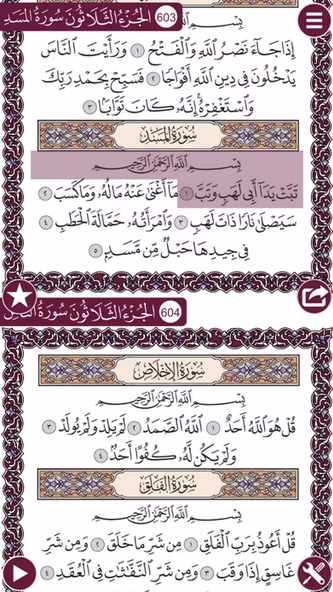 603 الجزء الثلاثون سورة المسد
بِسْمِ اللَّهِ الرَّحْمَٰنِ الرَّحِيمِ
إِذَا جَآءَ نَصْرُ اللَّهِ وَالْفَتْحُ ١ وَرَأَيْتَ النَّاسَ
يَدْخُلُونَ فِي دِينِ اللَّهِ أَفْوَاجًا ٢ فَسَبِّحْ بِحَمْدِ رَبِّكَ
وَاسْتَغْفِرْهُ إِنَّهُ كَانَ تَوَّابًا ٣
سُورَةُ المَسَدِ
بِسْمِ اللَّهِ الرَّحْمَٰنِ الرَّحِيمِ
تَبَّتْ يَدَآ أَبِي لَهَبٍ وَتَبَّ ١ مَآ أَغْنَىٰ عَنْهُ مَالُهُ وَمَا كَسَبَ ٢
سَيَصْلَىٰ نَارًا ذَاتَ لَهَبٍ ٣ وَامْرَأَتُهُ حَمَّالَةَ الْحَطَبِ ٤
فِي جِيدِهَا حَبْلٌ مِّن مَّسَدٍ ٥
604 الجزء الثلاثون سورة
سُورَةُ الإِخْلَاصِ
بِسْمِ اللَّهِ الرَّحْمَٰنِ الرَّحِيمِ
قُلْ هُوَ اللَّهُ أَحَدٌ ١ اللَّهُ الصَّمَدُ ٢ لَمْ يَلِدْ وَلَمْ يُولَدْ ٣
وَلَمْ يَكُن لَّهُ كُفُوًا أَحَدٌ ٤
سُورَةُ الفَلَقِ
بِسْمِ اللَّهِ الرَّحْمَٰنِ الرَّحِيمِ
قُلْ أَعُوذُ بِرَبِّ الْفَلَقِ ١ مِن شَرِّ مَا خَلَقَ ٢ وَمِن شَرِّ
غَاسِقٍ إِذَا وَقَبَ ٣ وَمِن شَرِّ النَّفَّاثَاتِ فِي الْعُقَدِ ٤